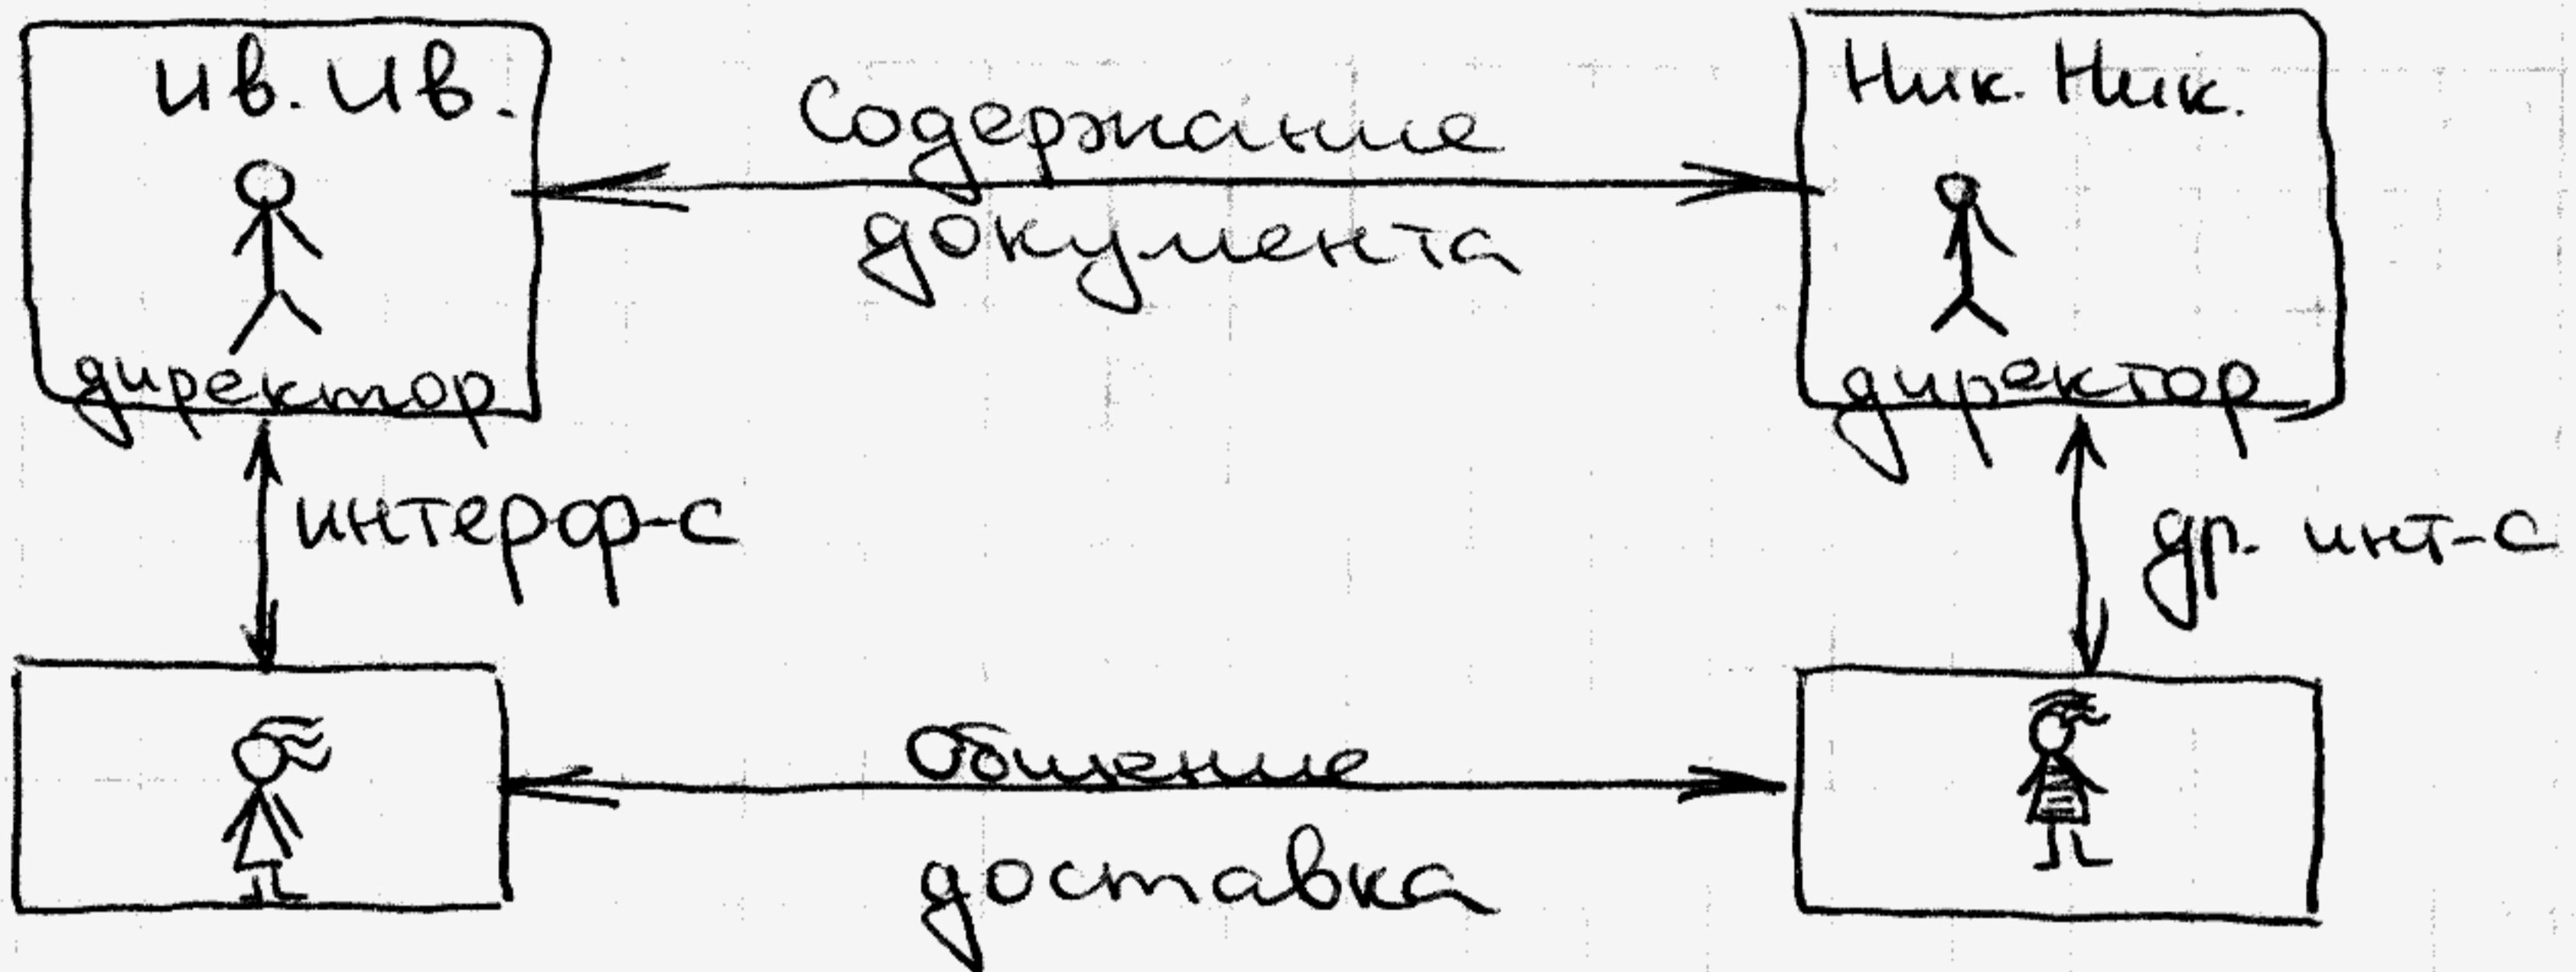 Ив. Ив.
Ник. Ник.
Содержание
документа
директор
директор
интерф-с
др. инт-с
Общение
доставка